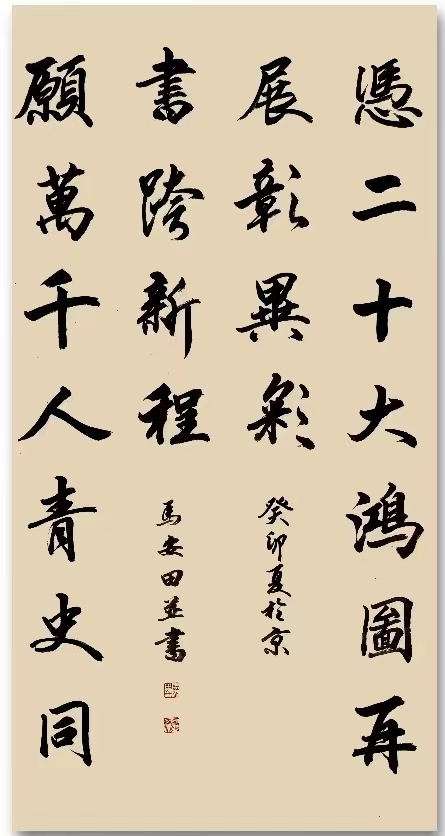 憑二十大鴻圖再
展彰異彩
癸卯夏於京
願萬千人青史同
書跨新程
馬安田並書